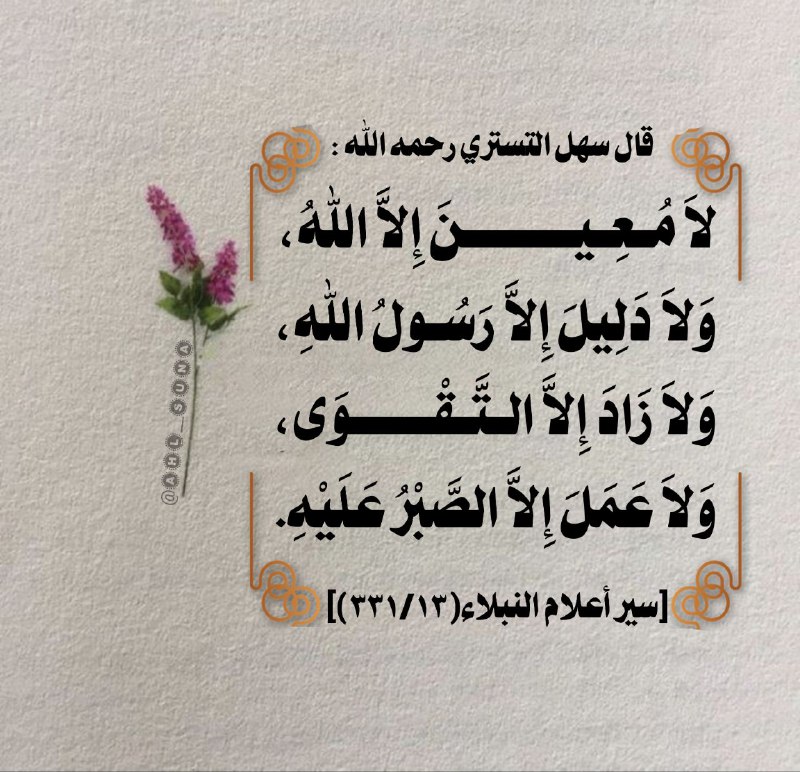 قال سهل التستري رحمه الله :
لاَ مُـعِـيـــنَ إِلاَّ اللهُ،
وَلاَ دَلِيلَ إِلاَّ رَسُـولُ اللهِ،
وَلاَ زَادَ إِلاَّ الـتَّـقْــوَى،
وَلاَ عَمَلَ إِلاَّ الصَّبْرُ عَلَيْهِ.
[سير أعلام النبلاء(٣٣١/١٣)]
@AHL_SUNA